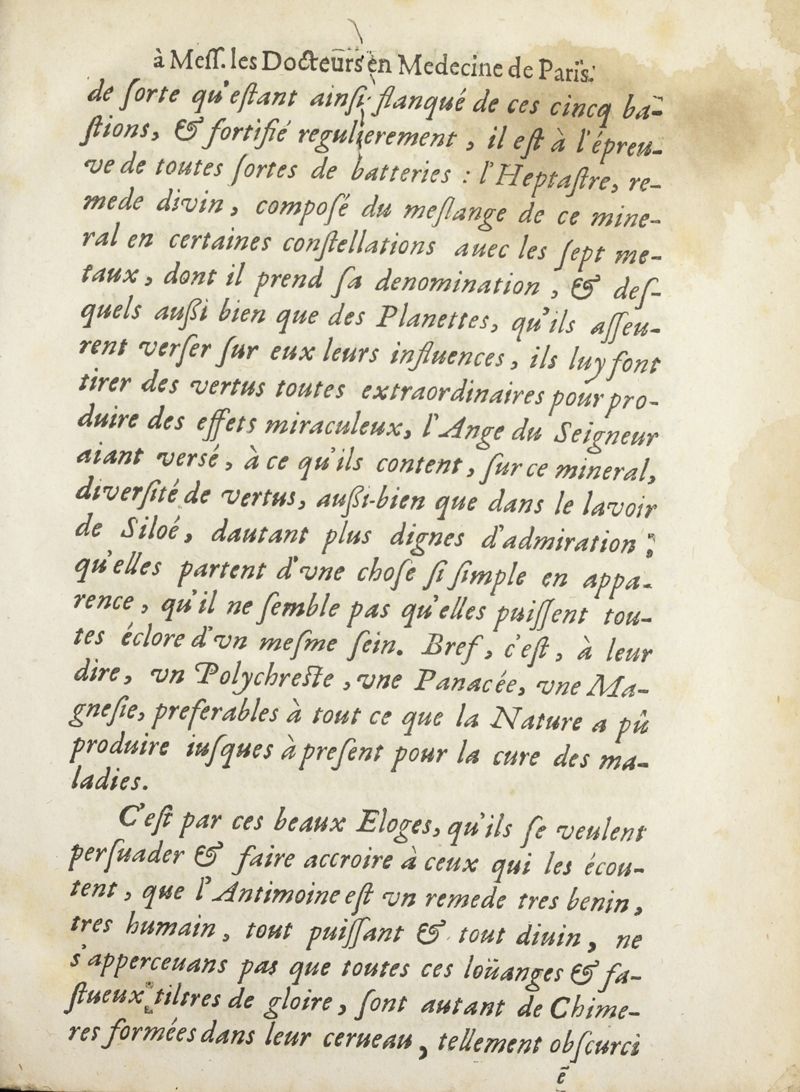 à Meſſ. les Docteurs en Medecine de Paris.
de ſorte qu'eſtant ainſi flanqué de ces cincq ba-
ſtions, & fortifié regulierement, il eſt à l'épreu-
ve de toutes ſortes de batteries : l'Heptaſtre, re-
mede divin, compoſé du meſlange de ce mine-
ral en certaines conſtellations auec les ſept me-
taux, dont il prend ſa denomination, & deſ-
quels außi bien que des Planettes, qu'ils aſſeu-
rent verſer ſur eux leurs influences, ils luy font
tirer des vertus toutes extraordinaires pour pro-
duire des effets miraculeux, l'Ange du Seigneur
aiant versé, à ce qu'ils content, ſur ce mineral,
diverſité de vertus, außi-bien que dans le lavoir
de Siloé, dautant plus dignes d'admiration,
qu'elles partent d'vne choſe ſi ſimple en appa-
rence, qu'il ne ſemble pas qu'elles puiſſent tou-
tes éclore d'vn meſme ſein. Bref, c'eſt, à leur
dire, vn Polychreſte, vne Panacée, vne Ma-
gneſie, preferables à tout ce que la Nature a pû
produire iuſques à preſent pour la cure des ma-
ladies.
C'eſt par ces beaux Eloges, qu'ils ſe veulent
perſuader & faire accroire à ceux qui les écou-
tent, que l'Antimoine eſt vn remede tres benin,
tres humain, tout puiſſant & tout diuin, ne
s'apperceuans pas que toutes ces loüanges & fa-
ſtueux tiltres de gloire, ſont autant de Chime-
res formées dans leur cerueau, tellement obſcurci
ẽ